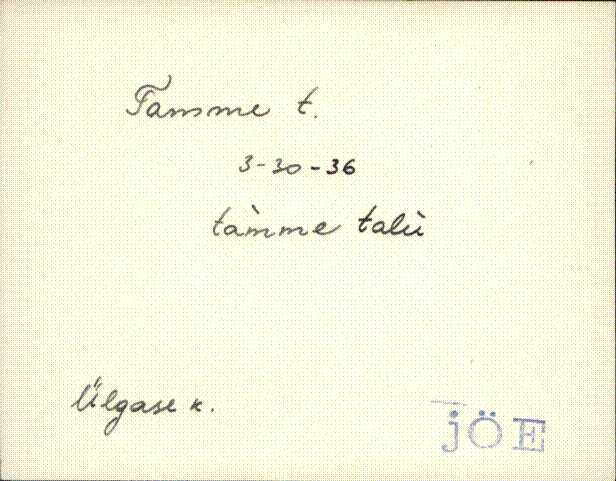 Tamme t.
3-30-36
tàmme talù
Ülgase k.
JÕE